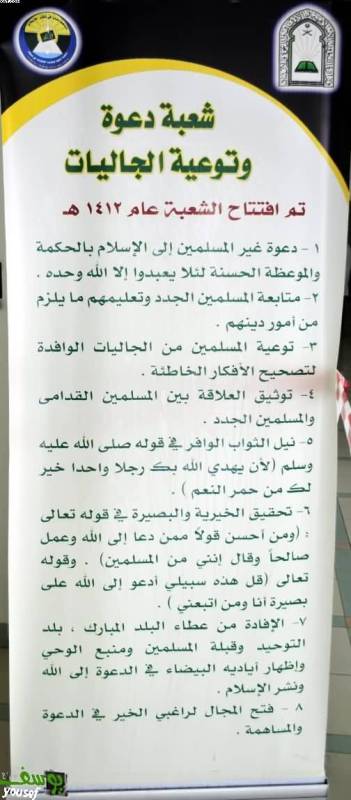 شعبة دعوة
وتوعية الجاليات
تم افتتاح الشعبة عام ١٤١٢ هـ
١- دعوة غير المسلمين إلى الإسلام بالحكمة
والموعظة الحسنة لئلا يعبدوا إلا الله وحده .
٢- متابعة المسلمين الجدد وتعليمهم ما يلزم
من أمور دينهم .
٣- توعية المسلمين من الجاليات الوافدة
لتصحيح الأفكار الخاطئة .
٤- توثيق العلاقة بين المسلمين القدامى
والمسلمين الجدد .
٥- نيل الثواب الوافر في قوله صلى الله عليه
وسلم (لأن يهدي الله بك رجلا واحدا خير
لك من حمر النعم ) .
٦- تحقيق الخيرية والبصيرة في قوله تعالى
: (ومن أحسن قولاً ممن دعا إلى الله وعمل
صالحاً وقال إنني من المسلمين) . وقوله
تعالى (قل هذه سبيلي أدعو إلى الله على
بصيرة أنا ومن اتبعني ) .
٧- الإفادة من عطاء البلد المبارك ، بلد
التوحيد وقبلة المسلمين ومنبع الوحي
وإظهار أياديه البيضاء في الدعوة إلى الله
ونشر الإسلام .
٨ - فتح المجال لراغبي الخير في الدعوة
والمساهمة .
يوسف
yousef